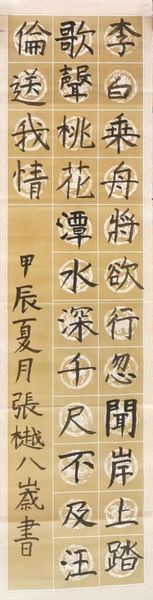 李白乘舟將欲行忽聞岸上踏
歌聲桃花潭水深千尺不及汪
倫送我情
甲辰夏月張樾八歲書